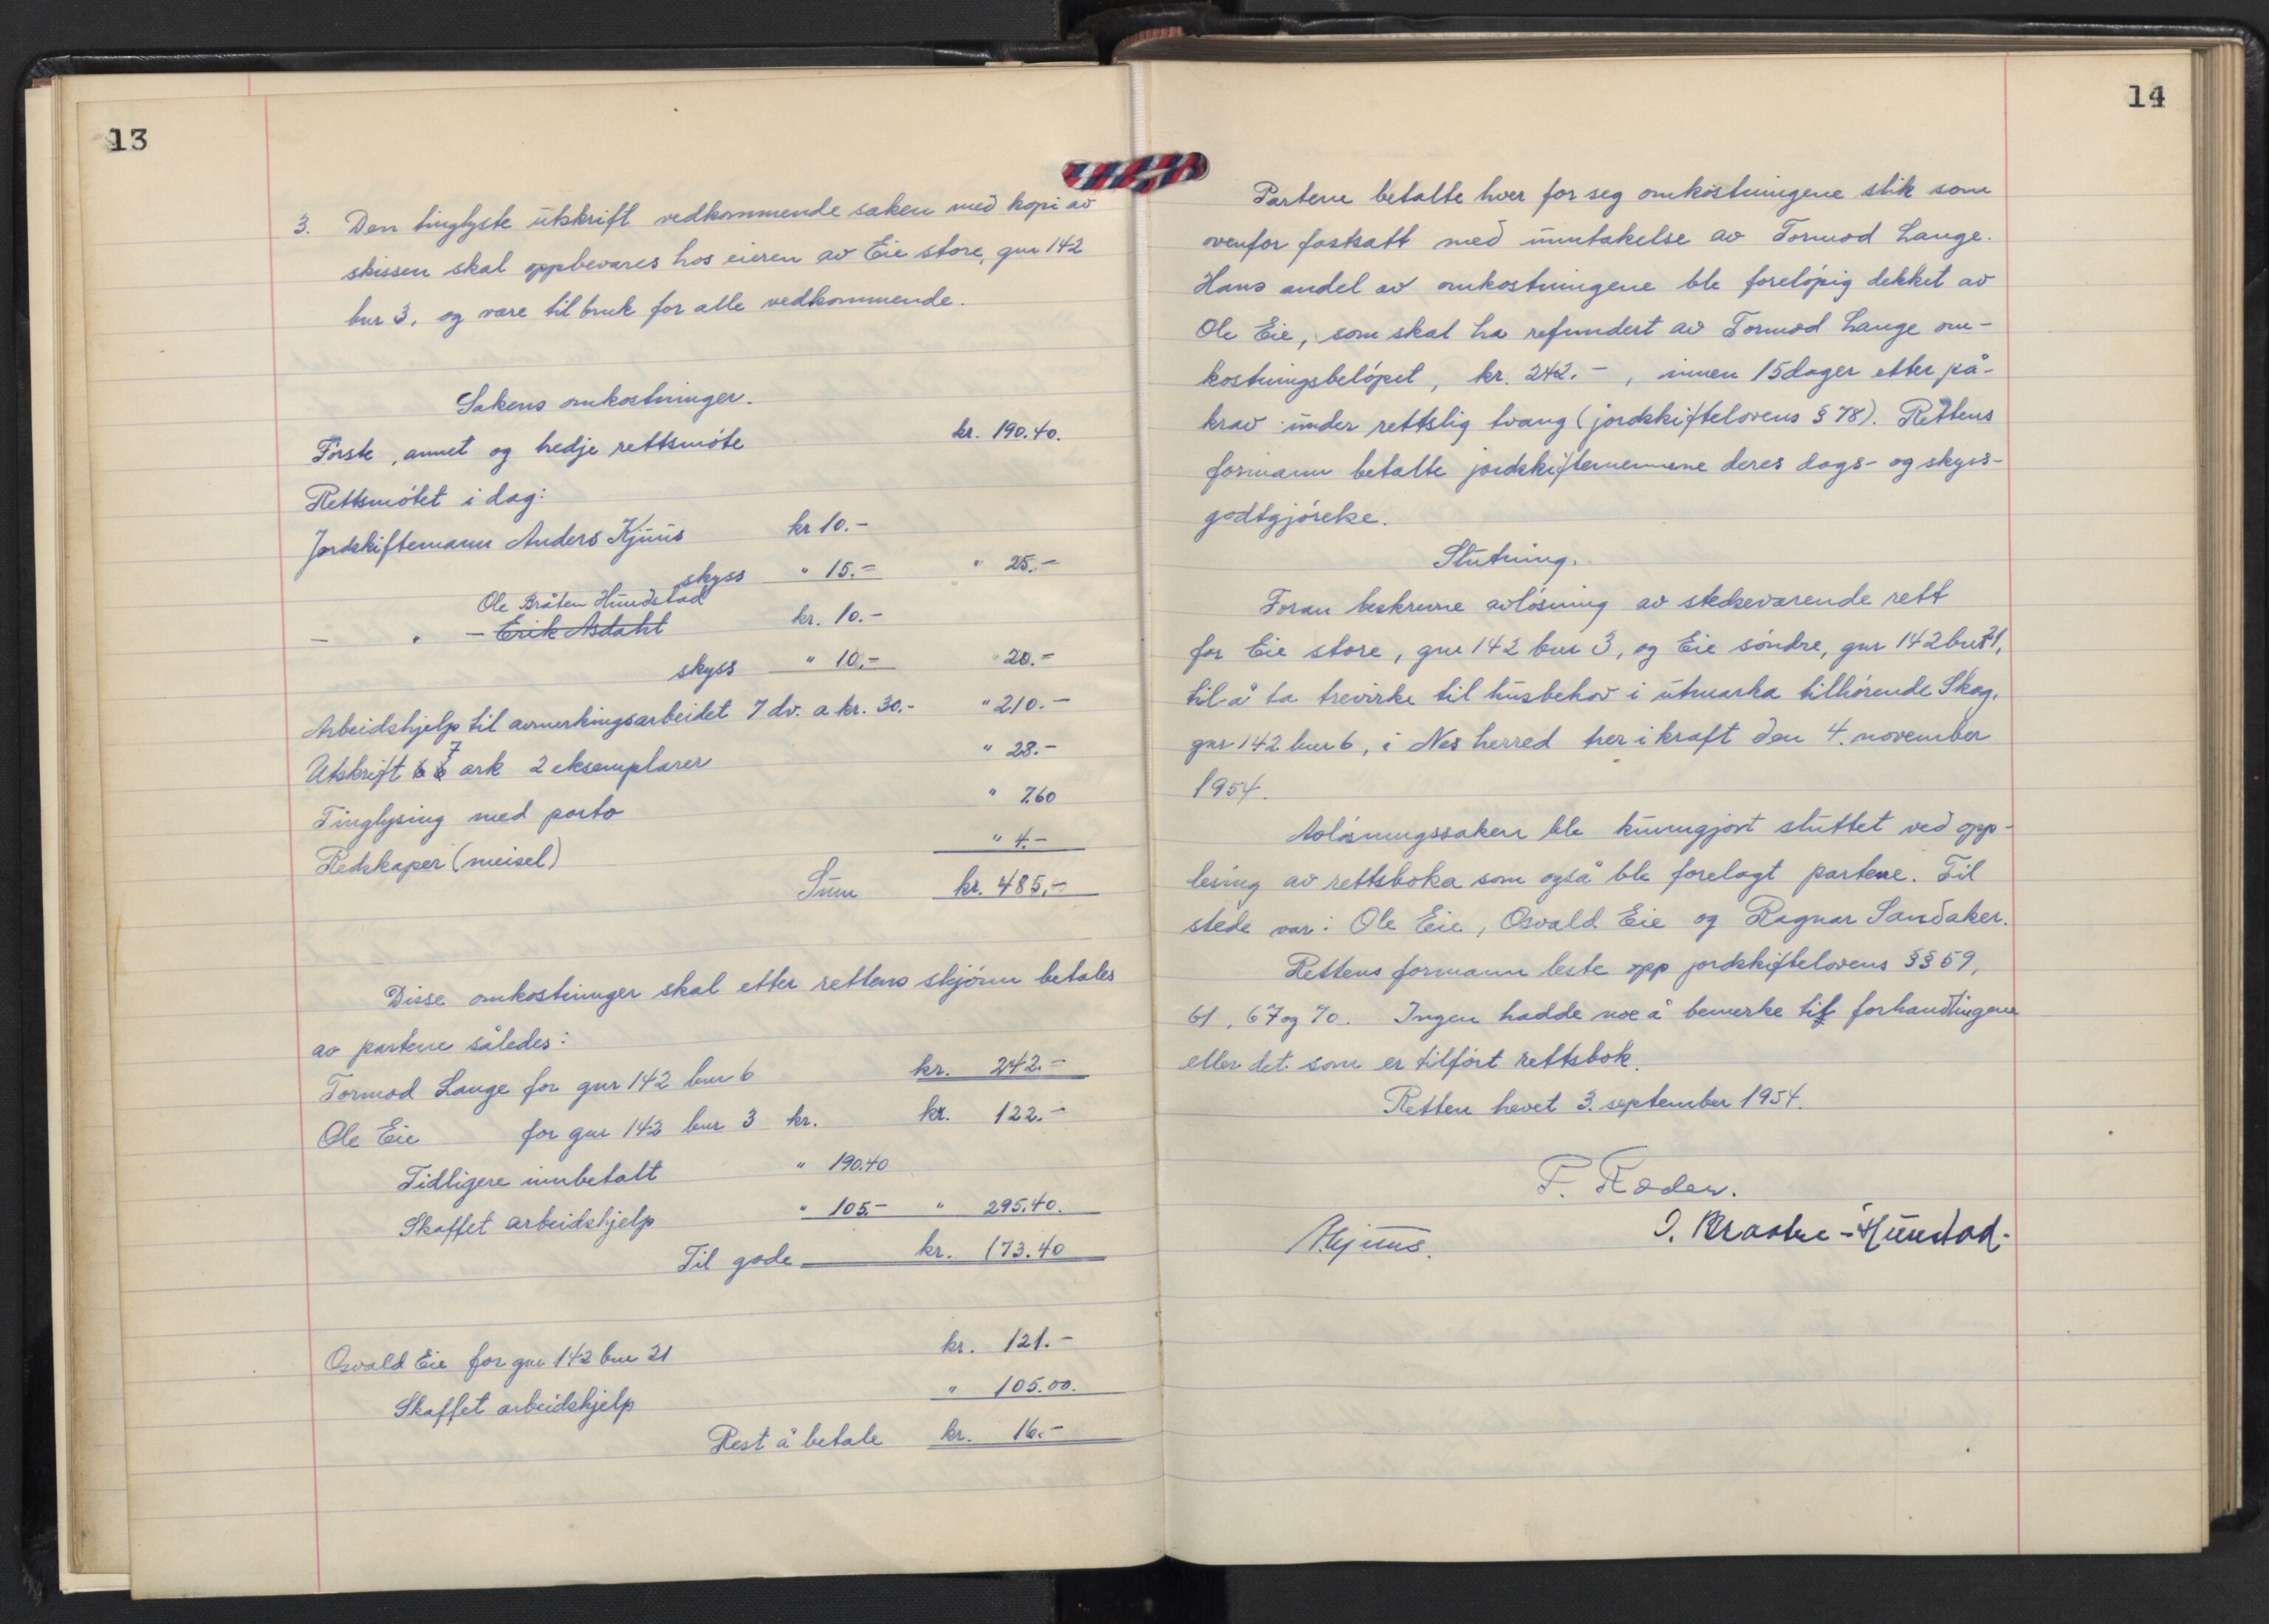 13
3. Den tinglyste utskrift vedkommende saken med kopi av
skissen skal oppbevares hos eieren av Eie store, gnr 142
bnr 3, og være til bruk for alle vedkommende.
Sakens omkostninger.
Første, annet og tredje rettsmöte kr. 190.40.
Rettsmötet i dag:
Jordskiftemann Anders Kjuus kr 10.-
skyss " 15.- " 25.-
Ole Bråten Hundstad
- " - Erik Asdahl kr. 10.-
skyss " 10.- " 20.-
Arbeidshjelp til avmerkingsarbeidet 7 dv. a kr. 30.- " 210.-
7
Utskrift 6 6 ark 2 eksemplarer " 28.-
Tinglysing med porto " 7.60
Redskaper (meisel) " 4.-
Sum kr. 485.-
Disse omkostninger skal etter rettens skjönn betales
av partene således:
Tormod Lange for gnr 142 bnr 6 kr. 242.-
Ole Eie for gnr 142 bnr 3 kr. kr. 122.-
Tidligere innbetalt " 190.40
Skaffet arbeidshjelp " 105.- " 295.40.
Til gode kr. 173.40
Osvald Eie for gnr 142 bnr 21 kr. 121.-
Skaffet arbeidshjelp " 105.00.
Rest å betale kr. 16.-
14
Partene betalte hver for seg omkostningene slik som
ovenfor fastsatt med unntakelse av Tormod Lange.
Hans andel av omkostningene ble forelöpig dekket av
Ole Eie, som skal ha refundert av Tormod Lange om-
kostningsbelöpet, kr. 242.-, innen 15 dager etter på-
krav under rettslig tvang (jordskiftelovens § 78). Rettens
formann betalte jordskiftemennene deres dags- og skyss-
godtgjörelse.
Slutning.
Foran beskrevne avlösning av stedsevarende rett
for Eie store, gnr 142 bnr 3, og Eie söndre, gnr 142 bnr 21,
til å ta trevirke til husbehov i utmarka tilhörende Skog,
gnr 142 bnr 6, i Nes herred trer i kraft den 4. november
1954.
Avlösningssaken ble kunngjort sluttet ved opp-
lesing av rettsboka som også ble forelagt partene. Til
stede var: Ole Eie, Osvald Eie og Ragnar Sandaker.
Rettens formann leste opp jordskiftelovens §§ 59,
61, 67 og 70. Ingen hadde noe å bemerke til forhandlingene
eller det som er tilfört rettsbok.
Retten hevet 3. september 1954.
T. Røder.
AKjuus. O. Braate-Hunstad.